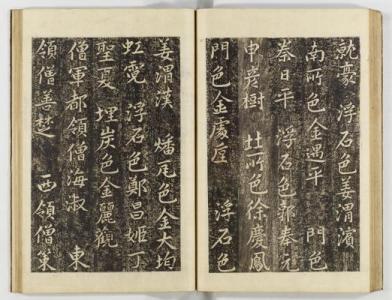 就豪 浮石色姜渭濱
南所色金遇平 門色
秦日平 浮石色郭奉元
申彦樹 杜所色徐慶鳳
門色金處 浮石色
姜渭漢 燔瓦色金大均
虹霓 浮石色鄭昌姬丁
聖夏 埋炭色金麗観
僧軍都領僧海淑 東
領僧善楚 西領僧策